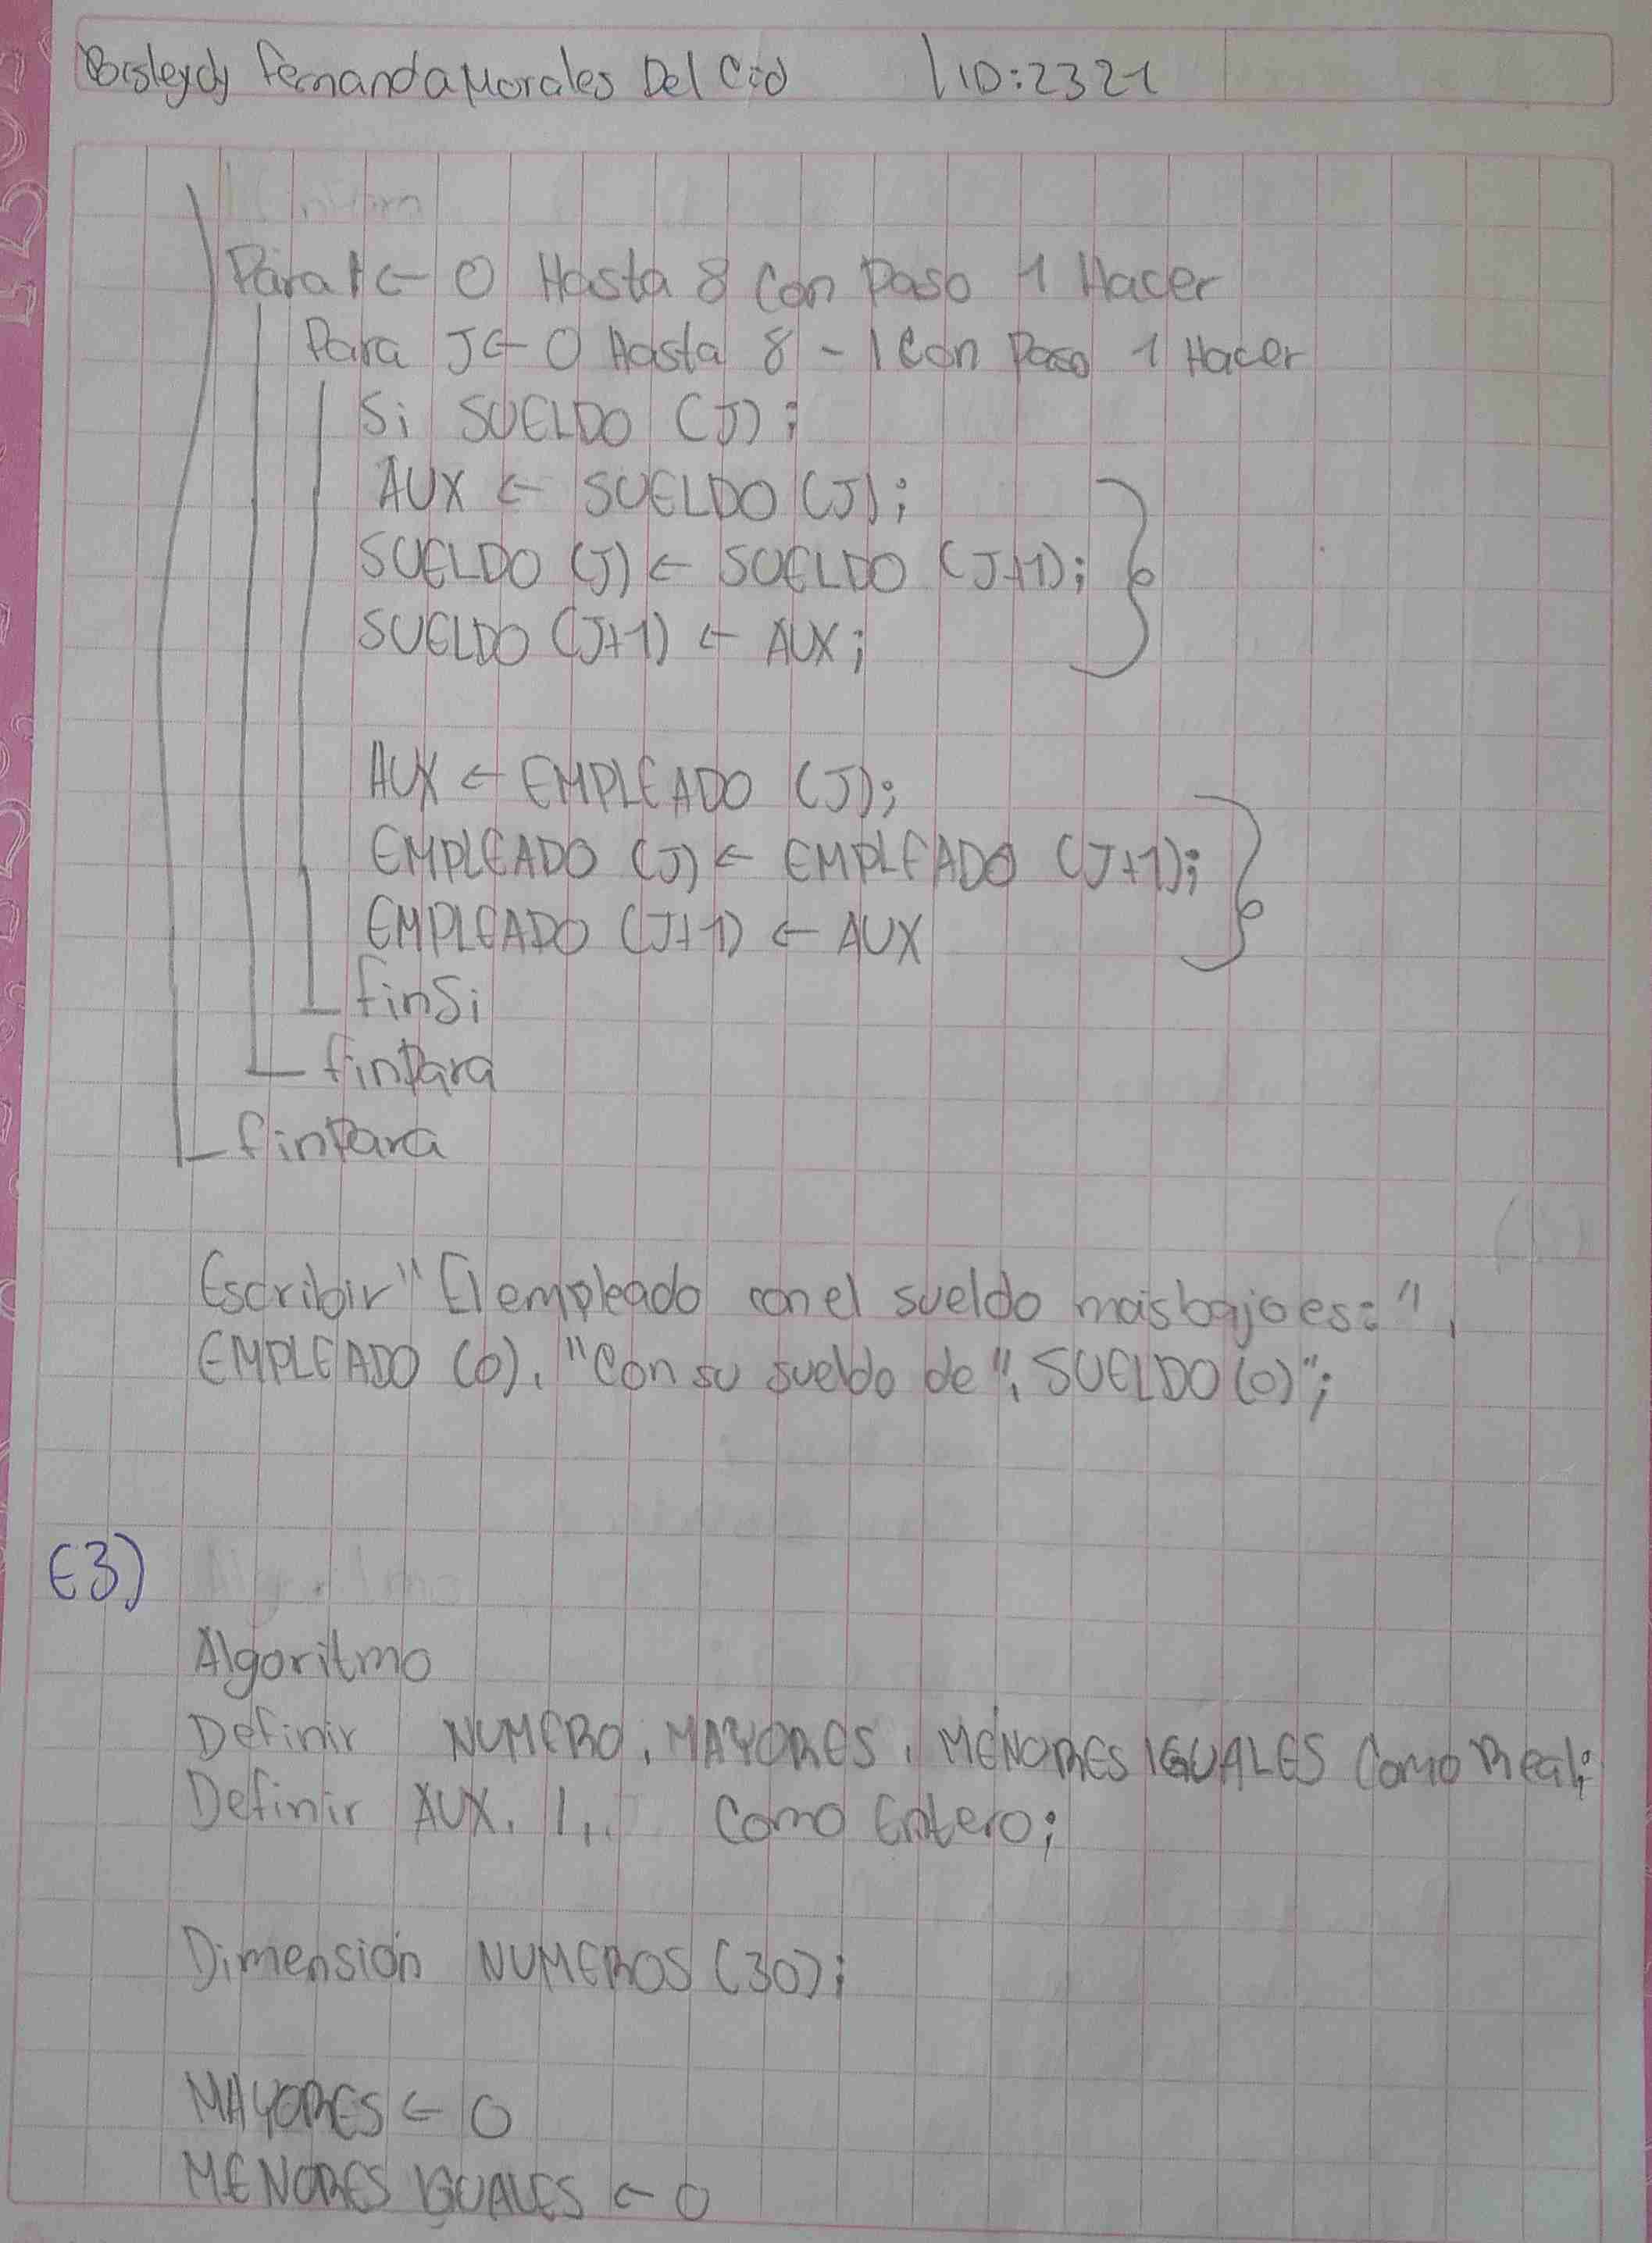 Fernanda Morales Del Cid ID:2321
Para I ← 0 Hasta 8 Con Paso 1 Hacer
Para J ← 0 Hasta 8 - 1 Con Paso 1 Hacer
Si SUELDO (J);
AUX ← SUELDO (J);
SUELDO (J) ← SUELDO (J+1);
SUELDO (J+1) ← AUX;
AUX ← EMPLEADO (J);
EMPLEADO (J) ← EMPLEADO (J+1);
EMPLEADO (J+1) ← AUX
finSi
finPara
finPara
Escribir "El empleado con el sueldo más bajo es:",
EMPLEADO (0), "Con su sueldo de", SUELDO (0)";
E3)
Algoritmo
Definir NUMERO, MAYORES, MENORES IGUALES Como Real;
Definir AUX, I, Como Entero;
Dimensión NUMEROS (30);
MAYORES ← 0
MENORES IGUALES ← 0